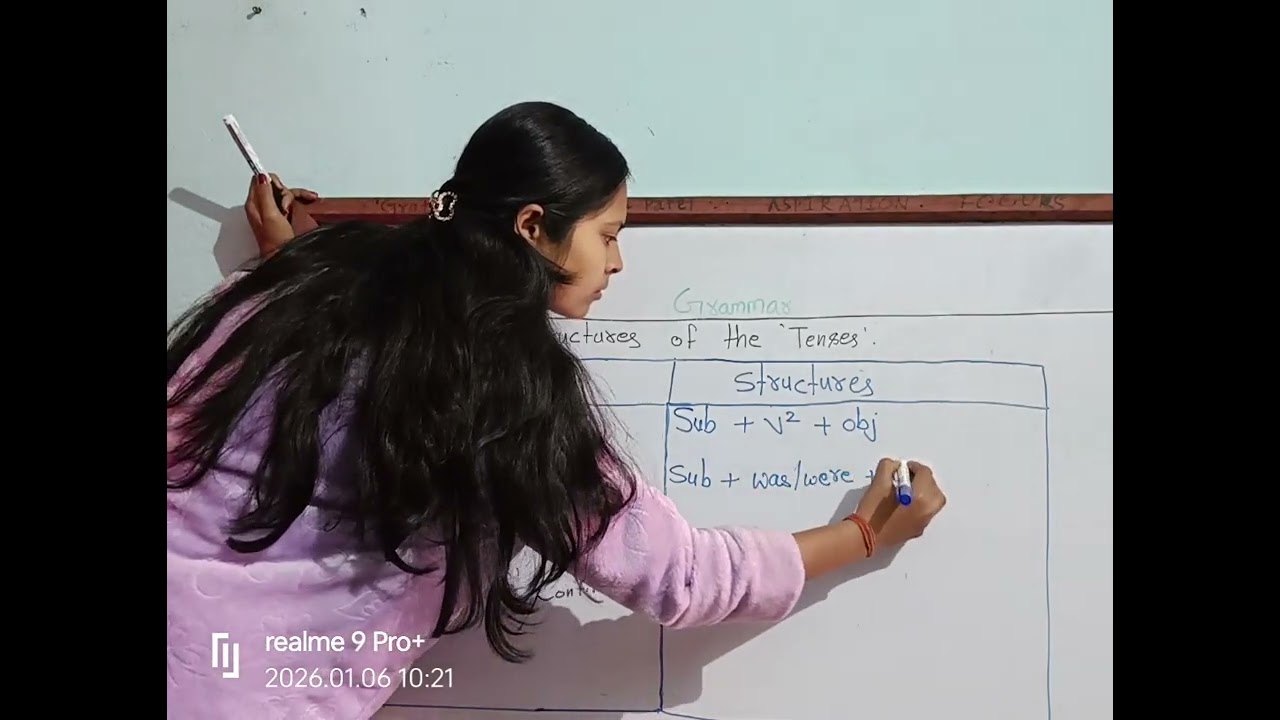 ASPIRATION
Grammar
uctures of the 'Tenses'.
Structures
Sub + V² + obj
Sub + was/were +
Conti
realme 9 Pro+
2026.01.06 10:21